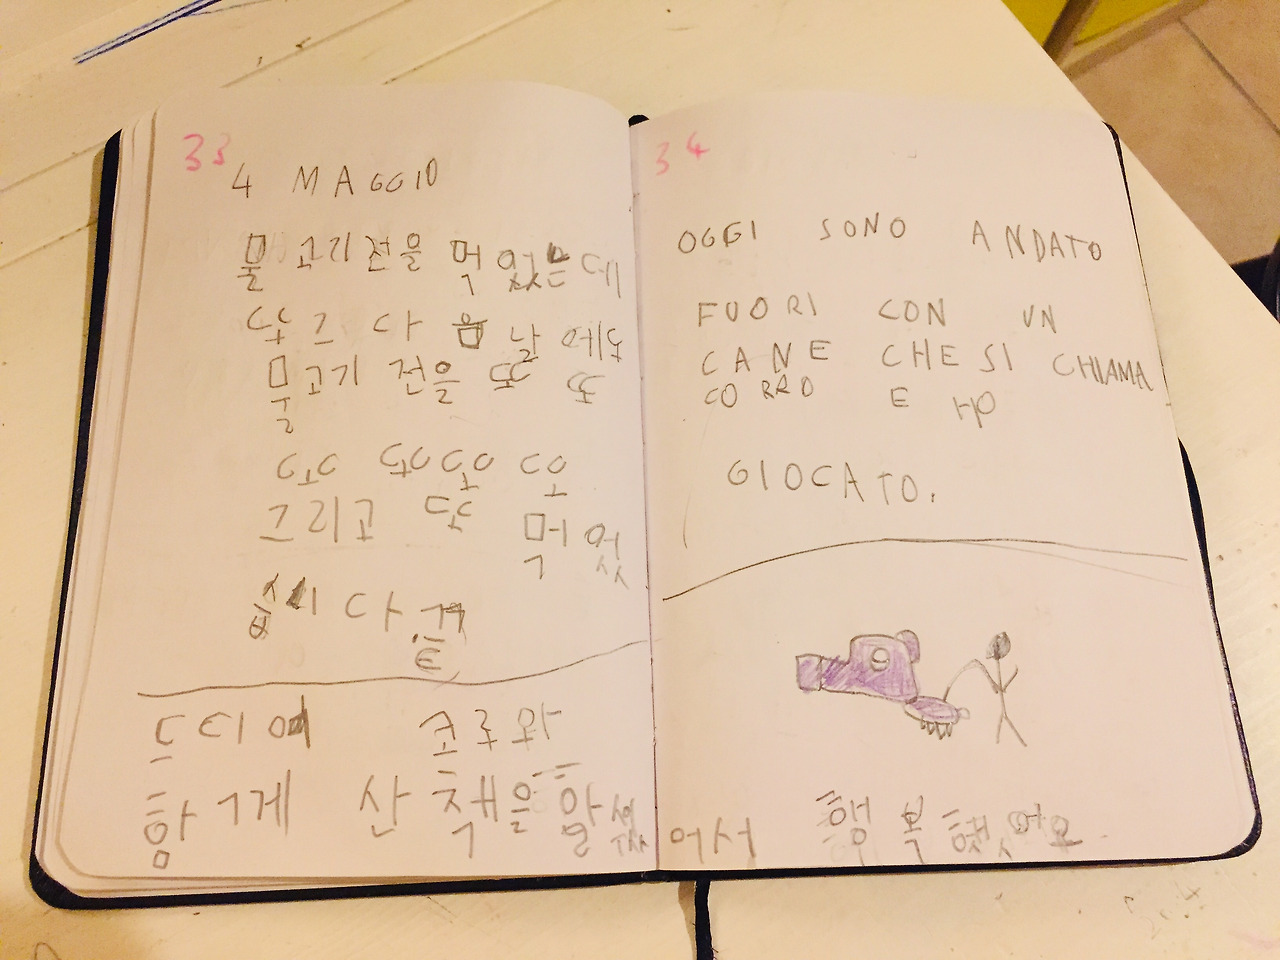 33
4 MAGGIO
물고기전을 먹었는데
또 그 다음날에도
물고기 전을 또 또
또 또 또 또
그리고 또 먹었
습니다
드디어 코로와
함께 산책을 할 수
34
OGGI SONO ANDATO
FUORI CON UN
CANE CHE SI CHIAMA
CORRO E HO
GIOCATO.
어서 행복했어요